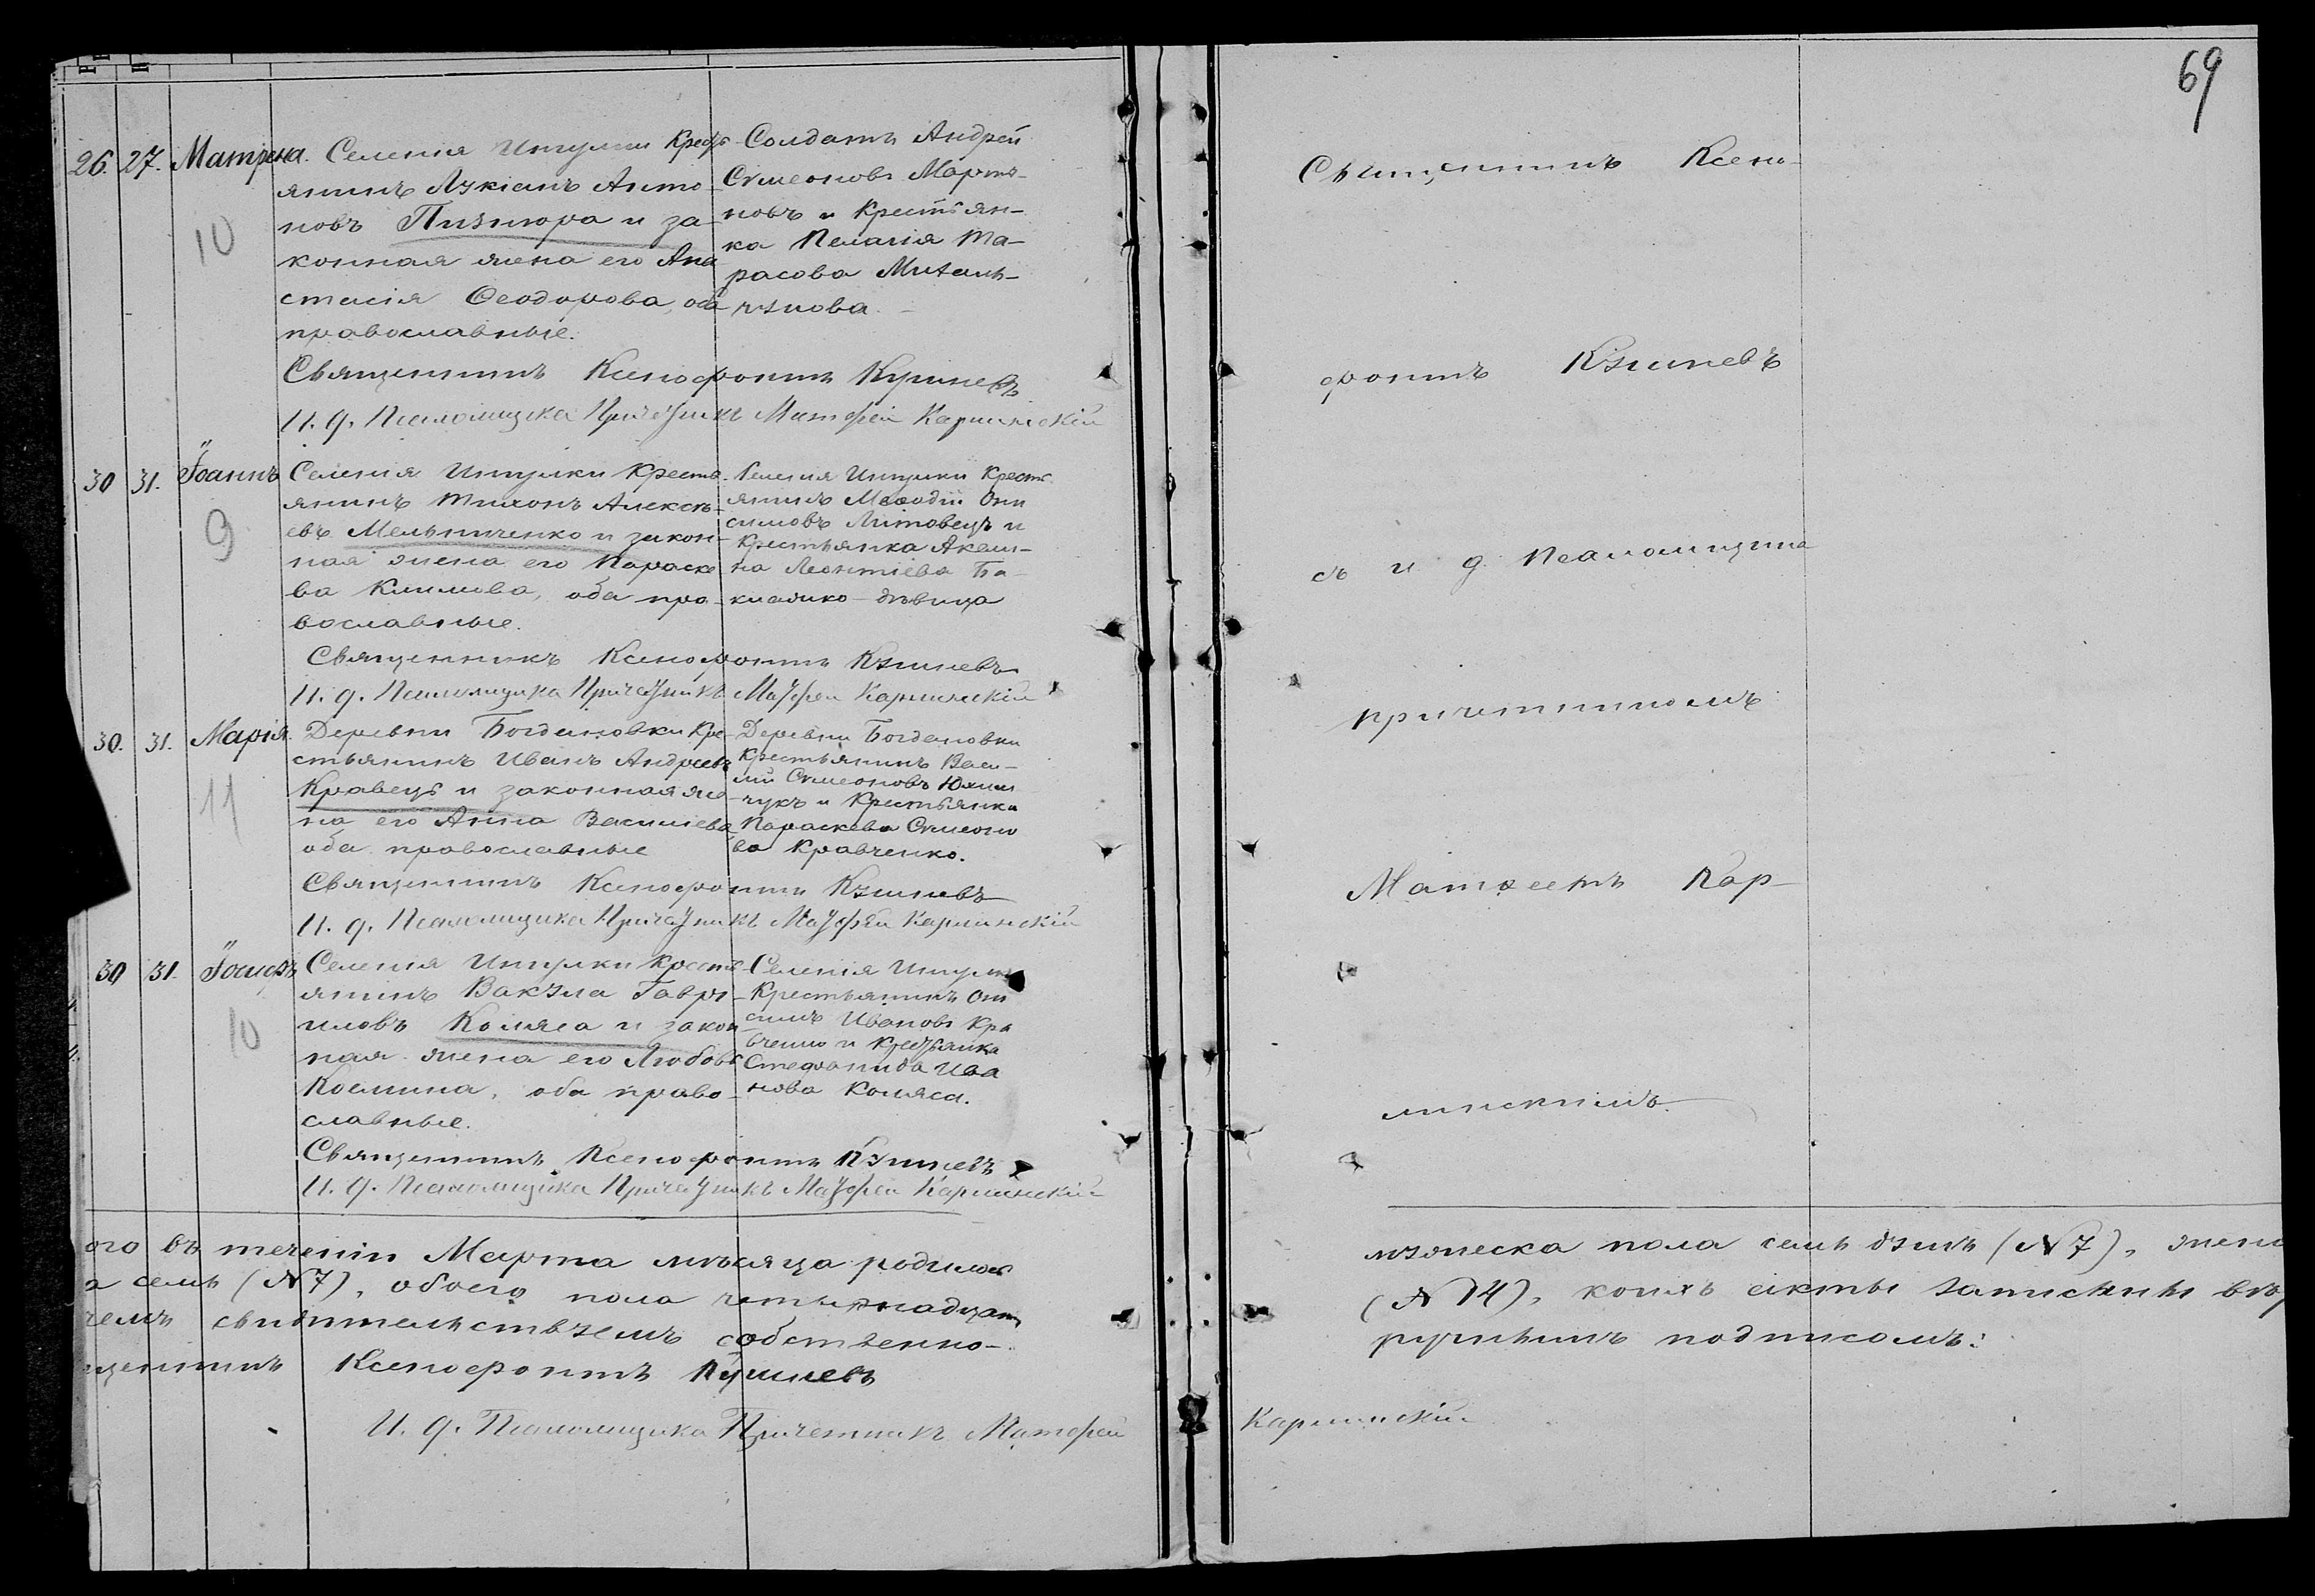 69
26. 27. Матрена. Селенія Ингулки Кресть-
янинъ Лукіанъ Анто-
новъ Пизнюра и за-
конная жена его Ана
стасія Ѳеодорова, оба
православные.
10
Солдатъ Андрей
Симеоновъ Марты-
новъ и Крестьян-
ка Пелагія Та-
расова Михаль-
чукова.
Священникъ Ксенофонтъ Кушневъ
И. д. Псаломщика Причетникъ Матфей Карпинскій
30 31. Іоаннъ Селенія Ингулки Кресть-
янинъ Тихонъ Алексѣ-
евъ Мельниченко и закон-
ная жена его Параске
ва Климова, оба пра-
вославные.
9
Селенія Ингулки Кресть-
янинъ Меѳодій Они
симовъ Литовецъ и
Крестьянка Акели-
на Леонтіева Ба-
клажко - дѣвица
Священникъ Ксенофонтъ Кушневъ
И. д. Псаломщика Причетникъ Матфей Карпинскій
30. 31. Марія. Деревни Богдановки Кре-
стьянинъ Иванъ Андреевъ
Кравецъ и законная же-
на его Анна Василіева
оба православные
11
Деревни Богдановки
Крестьянинъ Васи-
лій Симеоновъ
и Крестьянка
Параскева Симеоно
ва Кравченко.
Священникъ Ксенофонтъ Кушневъ
И. д. Псаломщика Причетникъ Матфей Карпинскій
30 31. Іосифъ Селенія Ингулки Кресть-
янинъ Вакула Гаври-
иловъ Коляса и закон
ная жена его Любовь
Космина, оба право-
славные.
10
Селенія Ингулки
Крестьянинъ Они
симъ Ивановъ Кра
вченко и Крестьянка
Стефанида Ива
нова Коляса.
Священникъ Ксенофонтъ Кушневъ
И. д. Псаломщика Причетникъ Матфей Карпинскій
Священникъ Ксено-
фонтъ Кушневъ
съ и д. Псаломщика
причетникомъ
Матѳеемъ Кар-
пинскимъ.
ого въ теченіи Марта мѣсяца родилось мужеска пола семь душъ (№ 7), женс
а семь (№ 7), обоего пола четырнадцать (№ 14), коихъ акты записаны вѣр
чемъ свидѣтельствуемъ собственно-ручнымъ подписомъ:
щенникъ Ксенофонтъ Кушневъ
И. д. Псаломщика Причетникъ Матфей Карпинскій